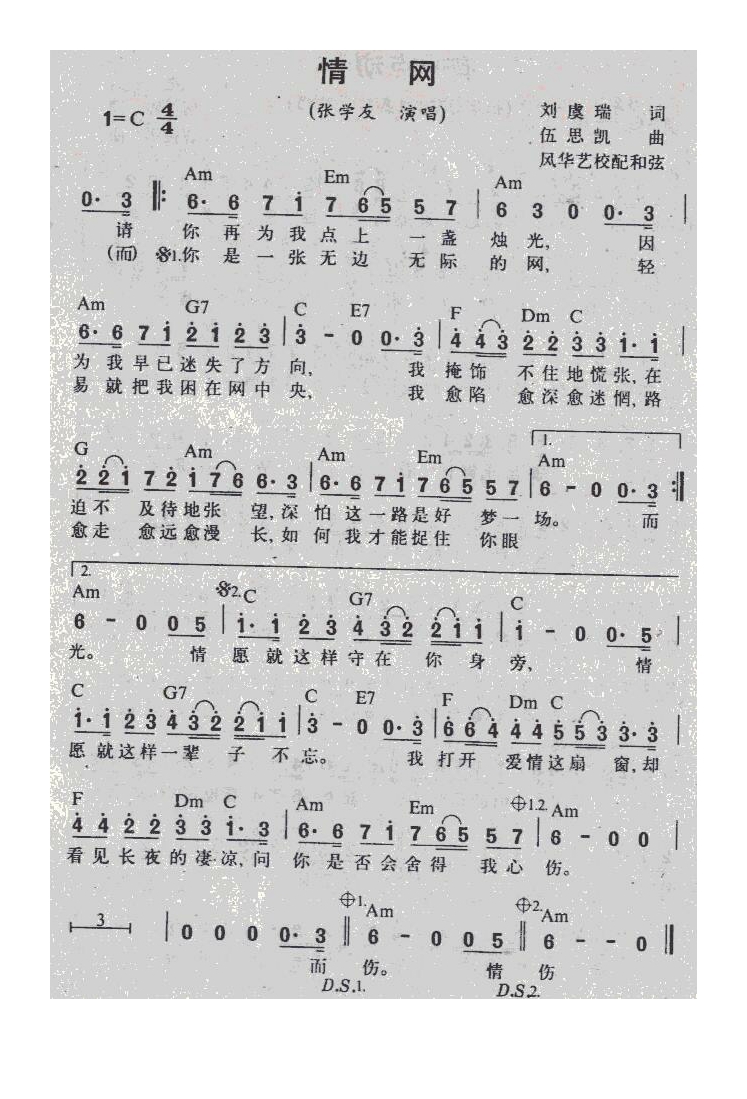 情 网
(张学友 演唱)
1=C 4/4
刘虞瑞 词
伍思凯 曲
风华艺校配和弦
Am Em Am
0· 3 ‖: 6· 6 7 i 7 6 5 5 7 | 6 3 0 0· 3 |
请 你再为我点上 一盏 烛光, 因
(而) 𝄋1.你是一张无边 无际 的网, 轻
Am G7 C E7 F Dm C
6· 6 7 i 2 1 2 3 | 3 - 0 0· 3 | 4 4 3 2 2 3 3 1· 1 |
为我早已迷失了方 向, 我 掩饰 不住地慌张,在
易就把我困在网中 央, 我 愈陷 愈深愈迷惘,路
G Am Am Em 1. Am
2 2 1 7 2 1 7 6 6· 3 | 6· 6 7 i 7 6 5 5 7 | 6 - 0 0· 3 :‖
迫不 及待地张 望,深 怕这一路是好 梦一 场。 而
愈走 愈远愈漫 长,如 何我才能捉住 你眼
2. Am 𝄋2. C G7 C
6 - 0 0 5 | 1· 1 2 3 4 3 2 2 1 1 | i - 0 0· 5 |
光。 情 愿就这样守在 你 身 旁, 情
C G7 C E7 F Dm C
1· 1 2 3 4 3 2 2 1 1 | 3 - 0 0· 3 | 6 6 4 4 4 5 5 3 3· 3 |
愿就这样一辈 子 不 忘。 我 打开 爱情这扇 窗,却
F Dm C Am Em ⊕1.2. Am
4 4 2 2 3 3 1· 3 | 6· 6 7 i 7 6 5 5 7 | 6 - 0 0 |
看见长夜的凄凉,问 你是否会舍得 我心 伤。
⊕1. Am ⊕2. Am
3 | 0 0 0 0· 3 ‖ 6 - 0 0 5 ‖ 6 - - 0 ‖
而 伤。 情 伤
D.S.1. D.S.2.